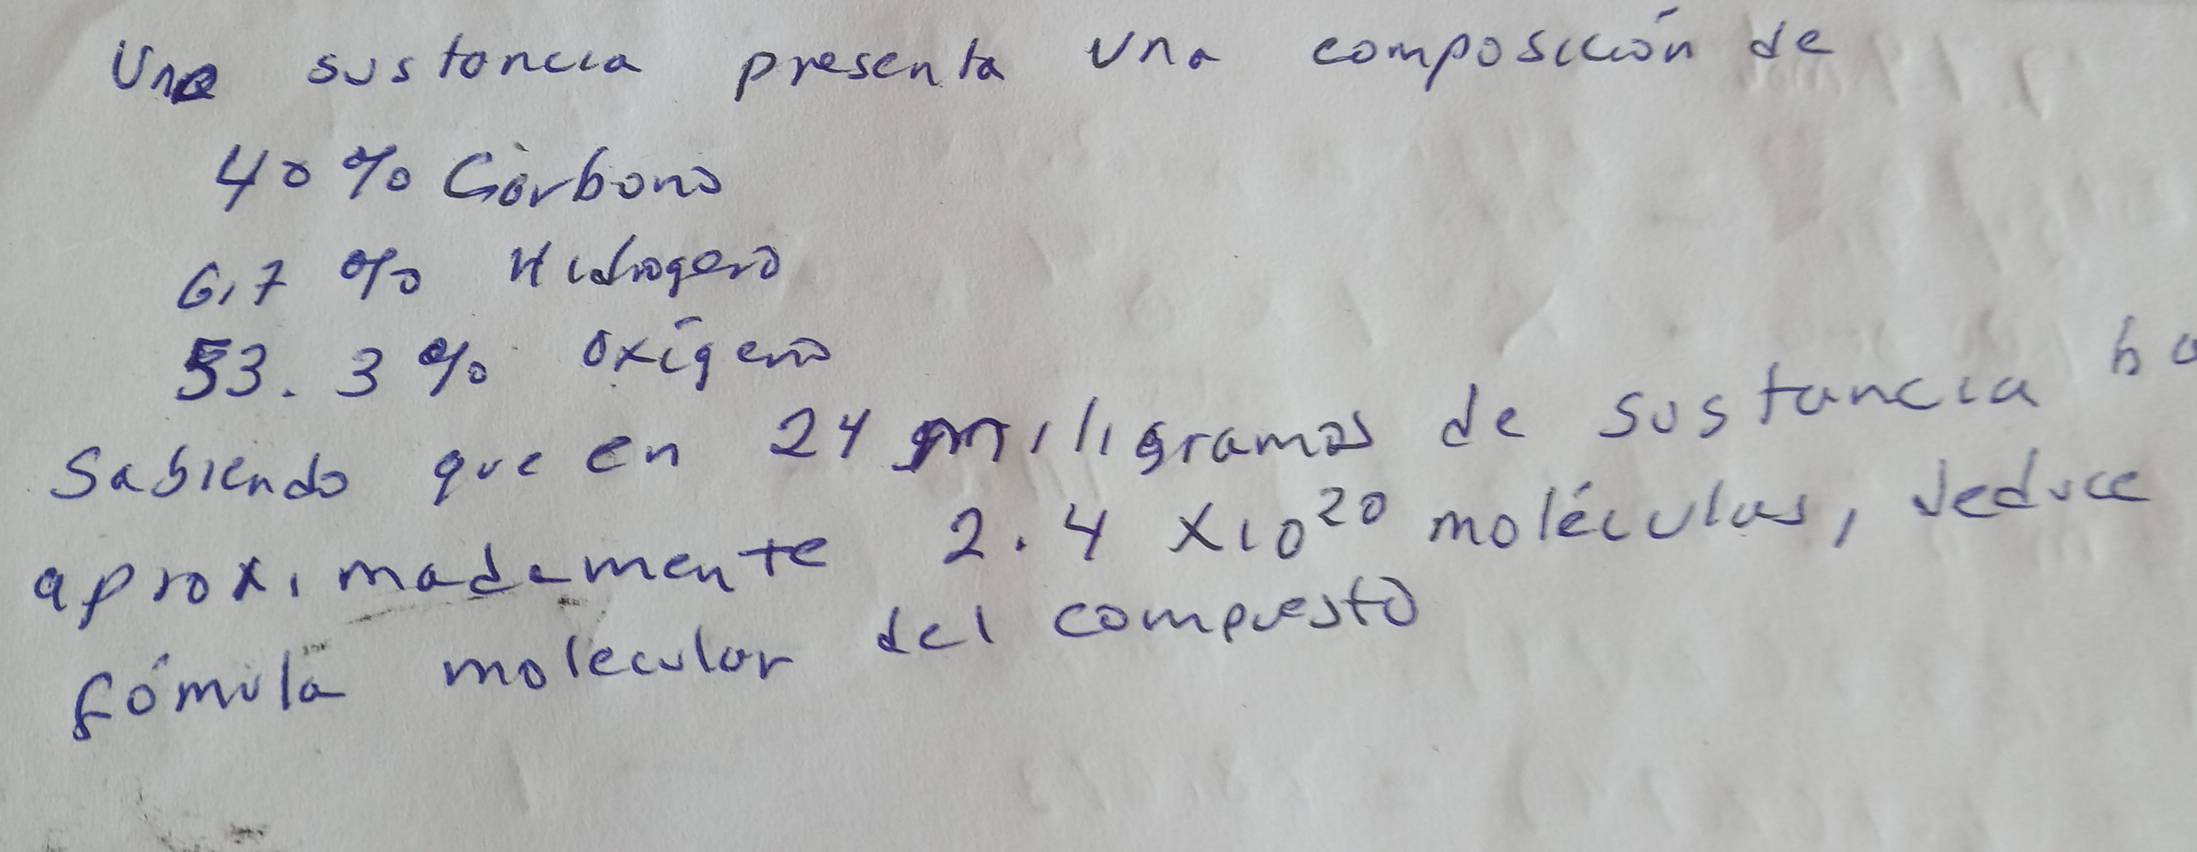 Una sustancia presenta una composición de
40 % Carbono
6,7 % Hidrogeno
53.3 % oxígeno
Sabiendo que en 24 miligramos de sustancia ha
aproximadamente 2.4 x10²⁰ moléculas, deduce
fómula molecular del compuesto